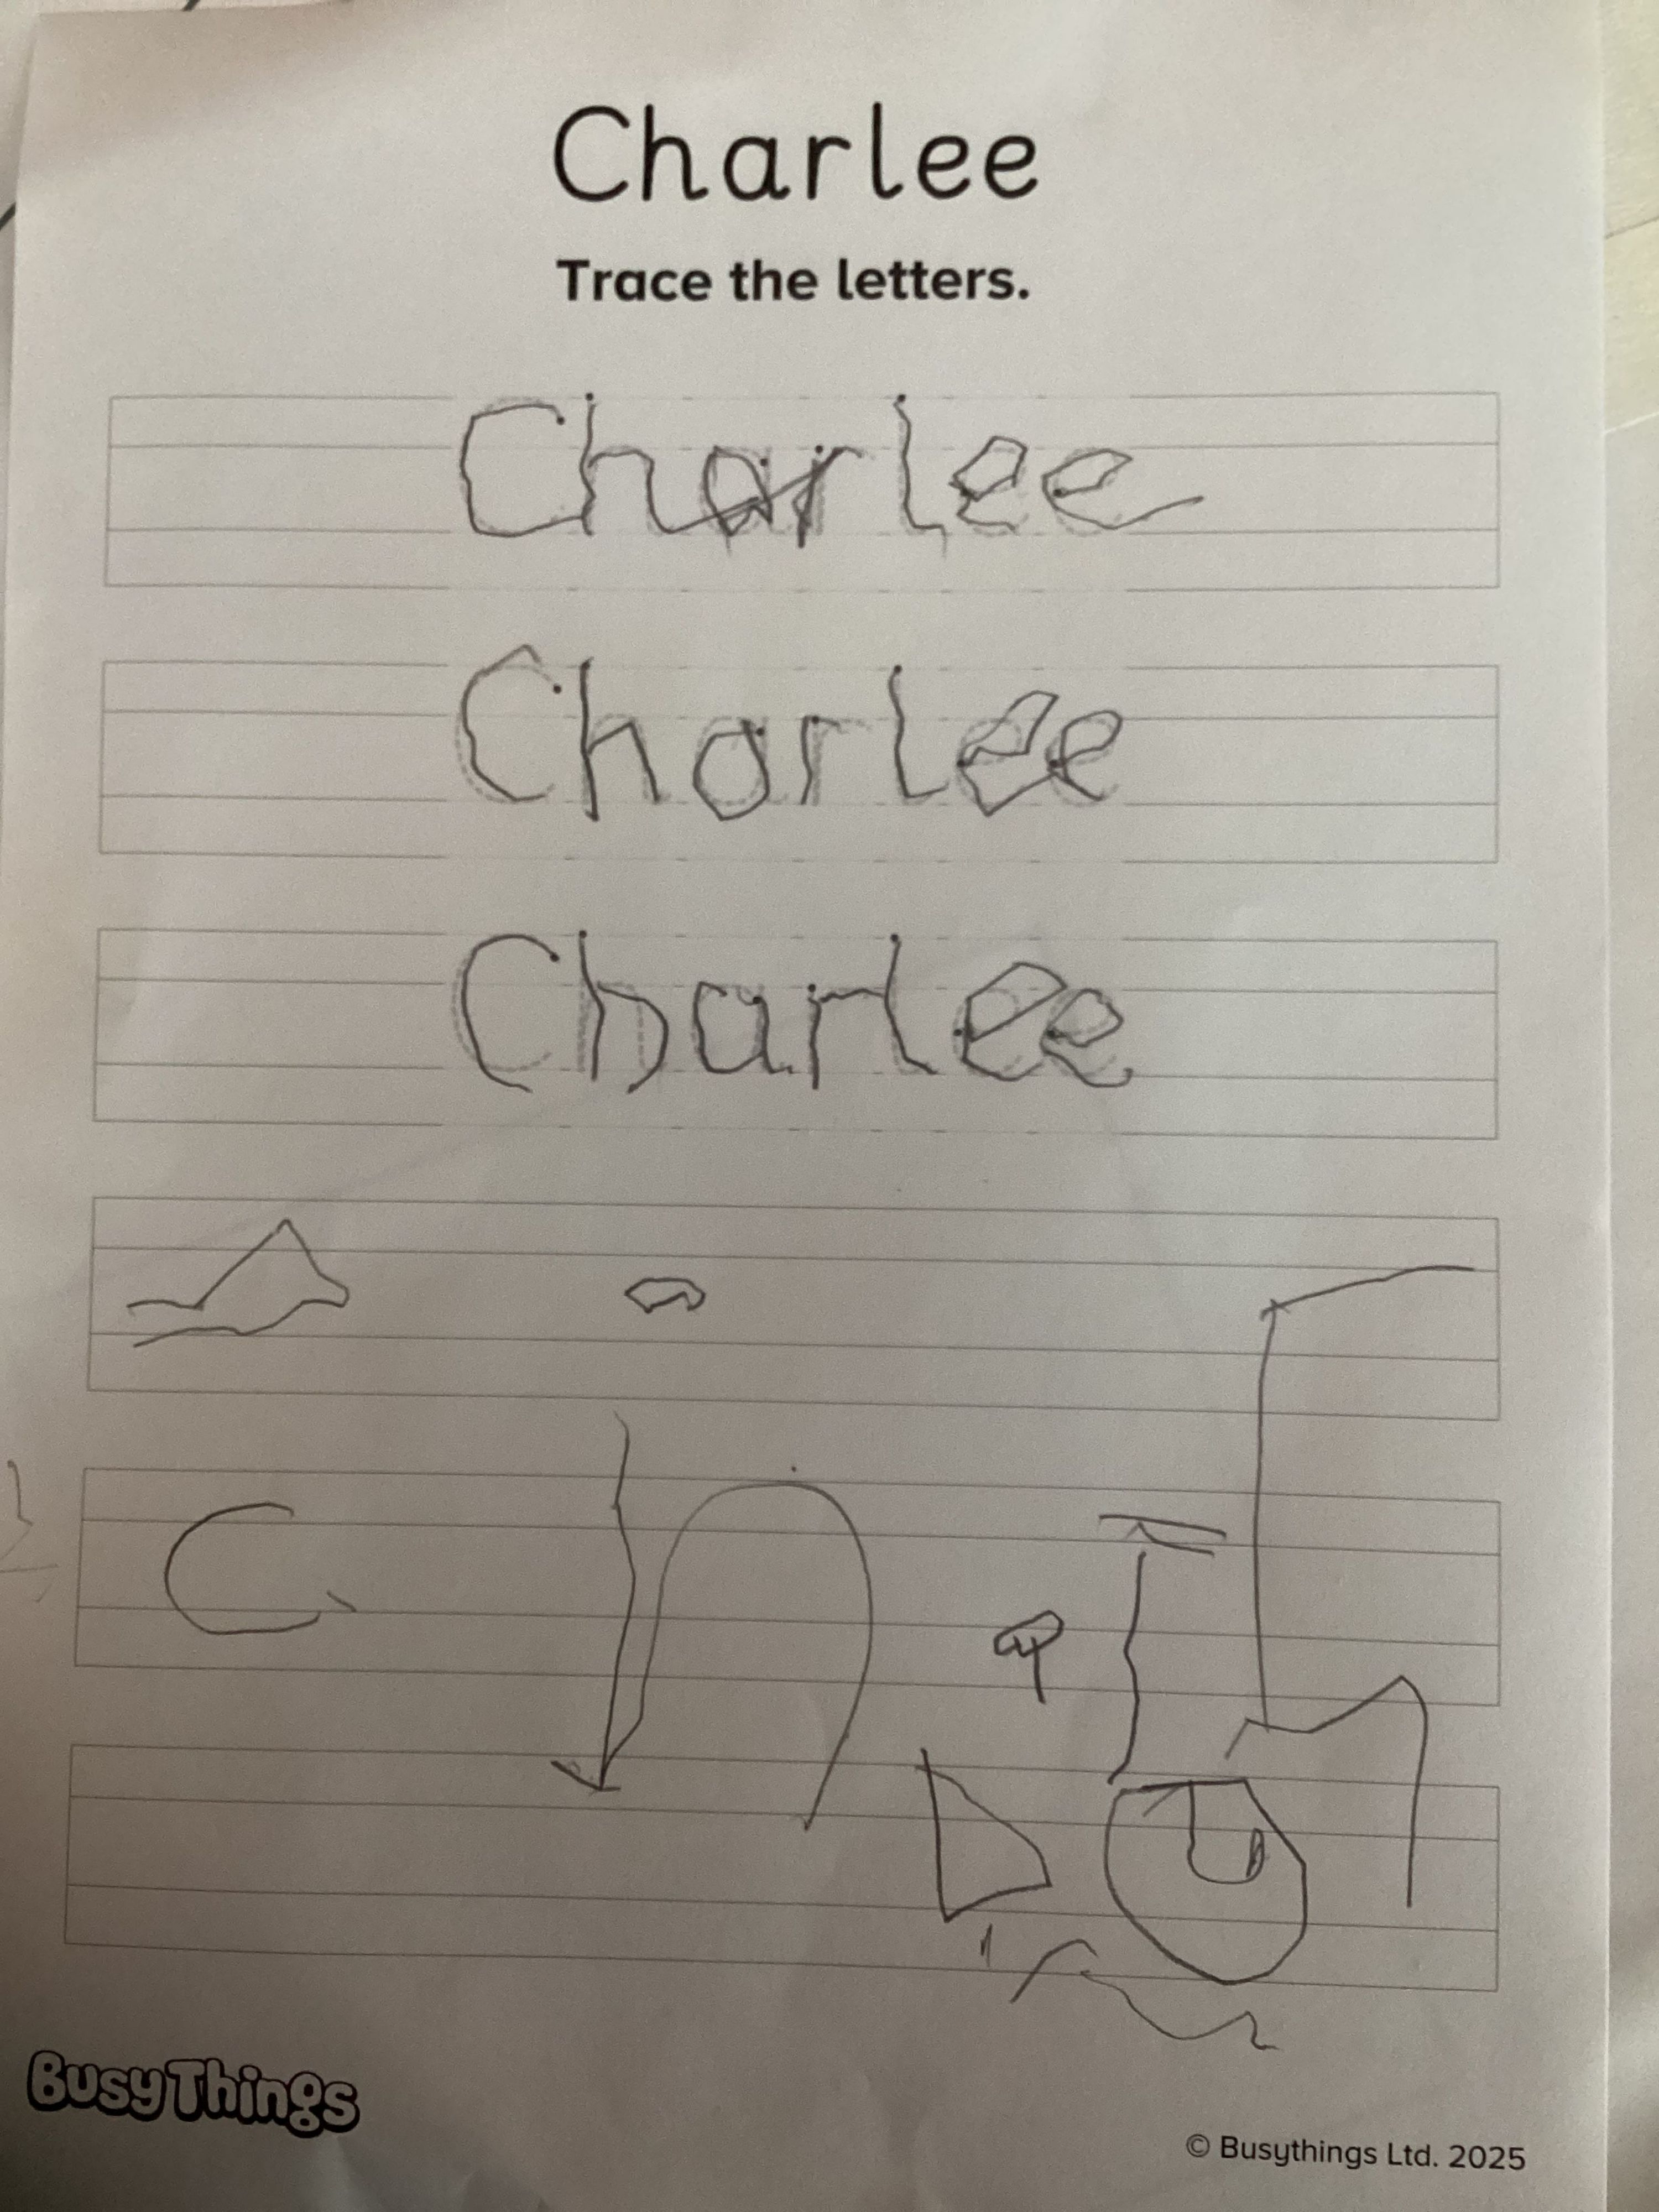 Charlee
Trace the letters.
Charlee
Charlee
Charlee
C h
BusyThings
© Busythings Ltd. 2025